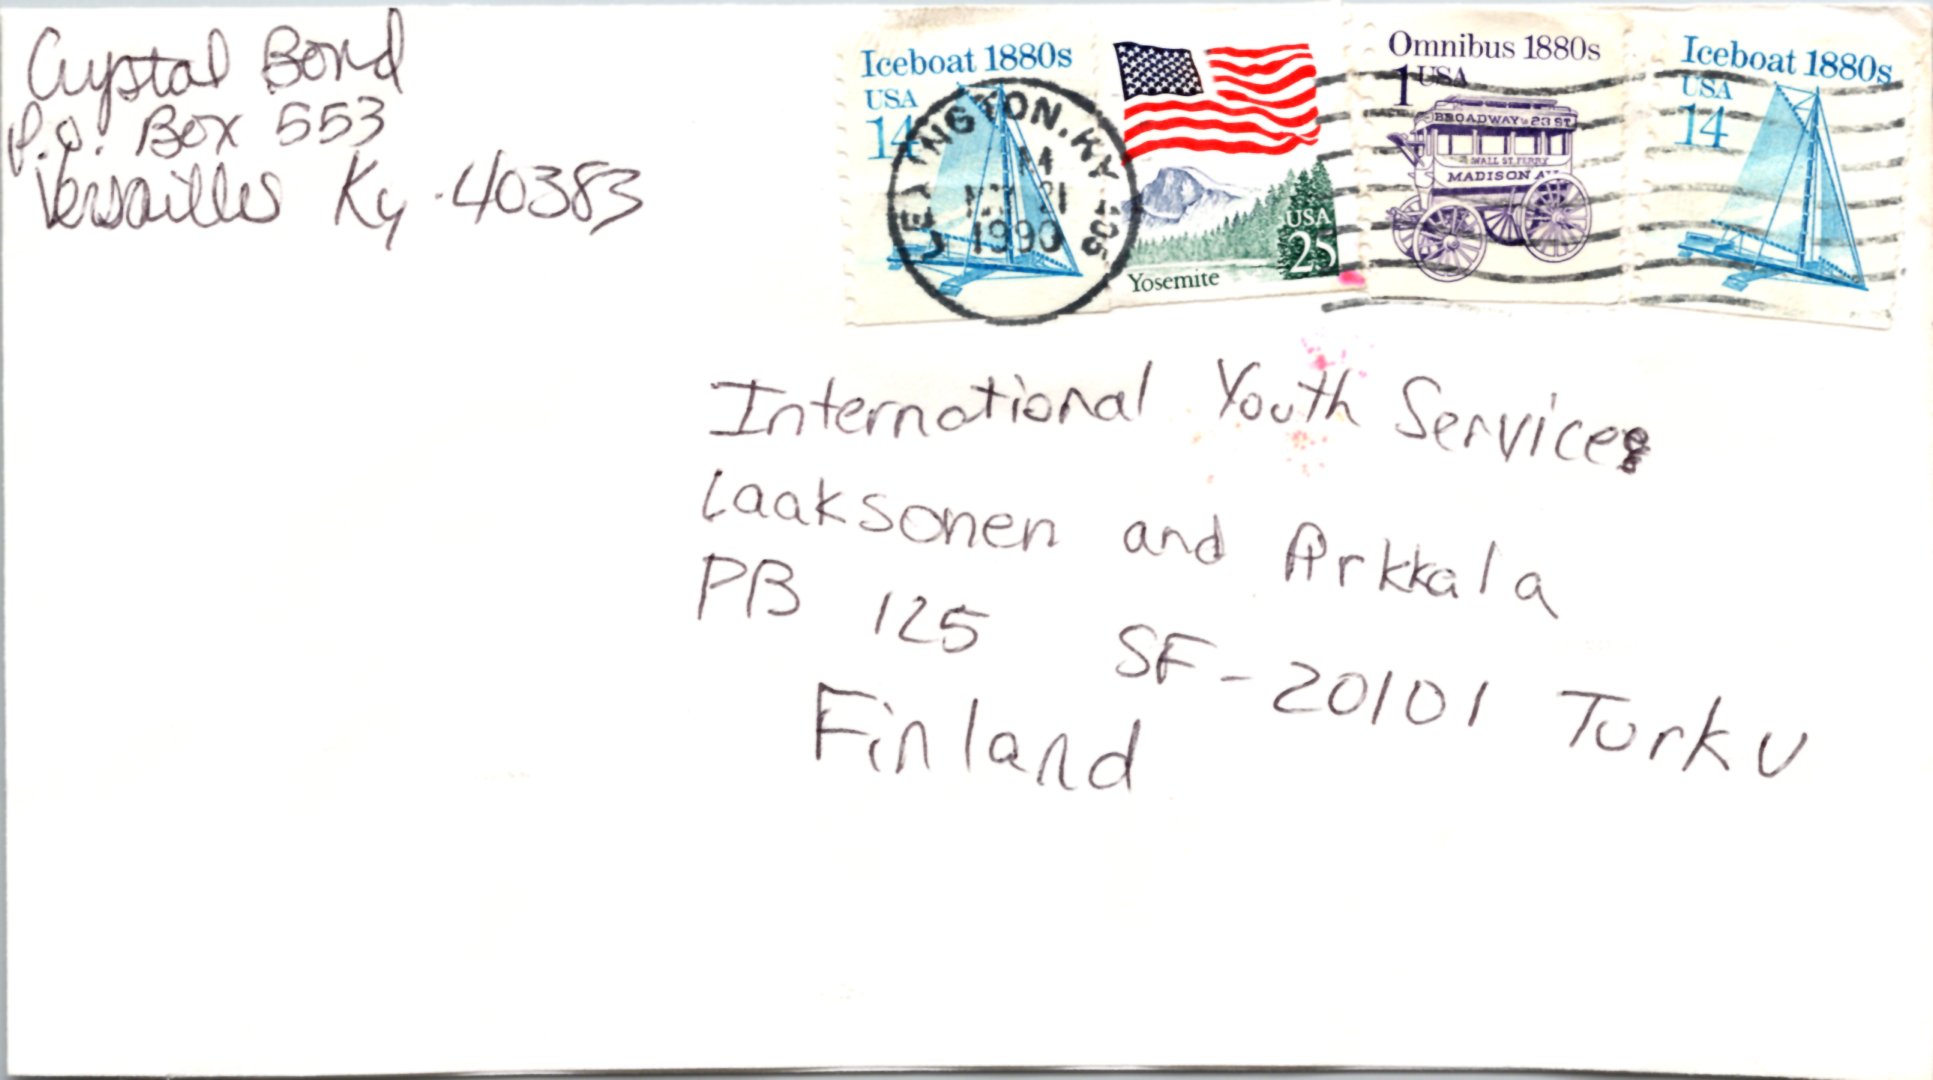 Crystal Bond
P.O. Box 553
Versailles Ky. 40383
Iceboat 1880s
USA
14
Yosemite
USA
25
Omnibus 1880s
1 USA
BROADWAY & 23 ST.
WALL ST. FERRY
MADISON AV
Iceboat 1880s
USA
14
INGTON, KY
21
1990
International Youth Service
Laaksonen and Arkkala
PB 125 SF-20101 Turku
Finland